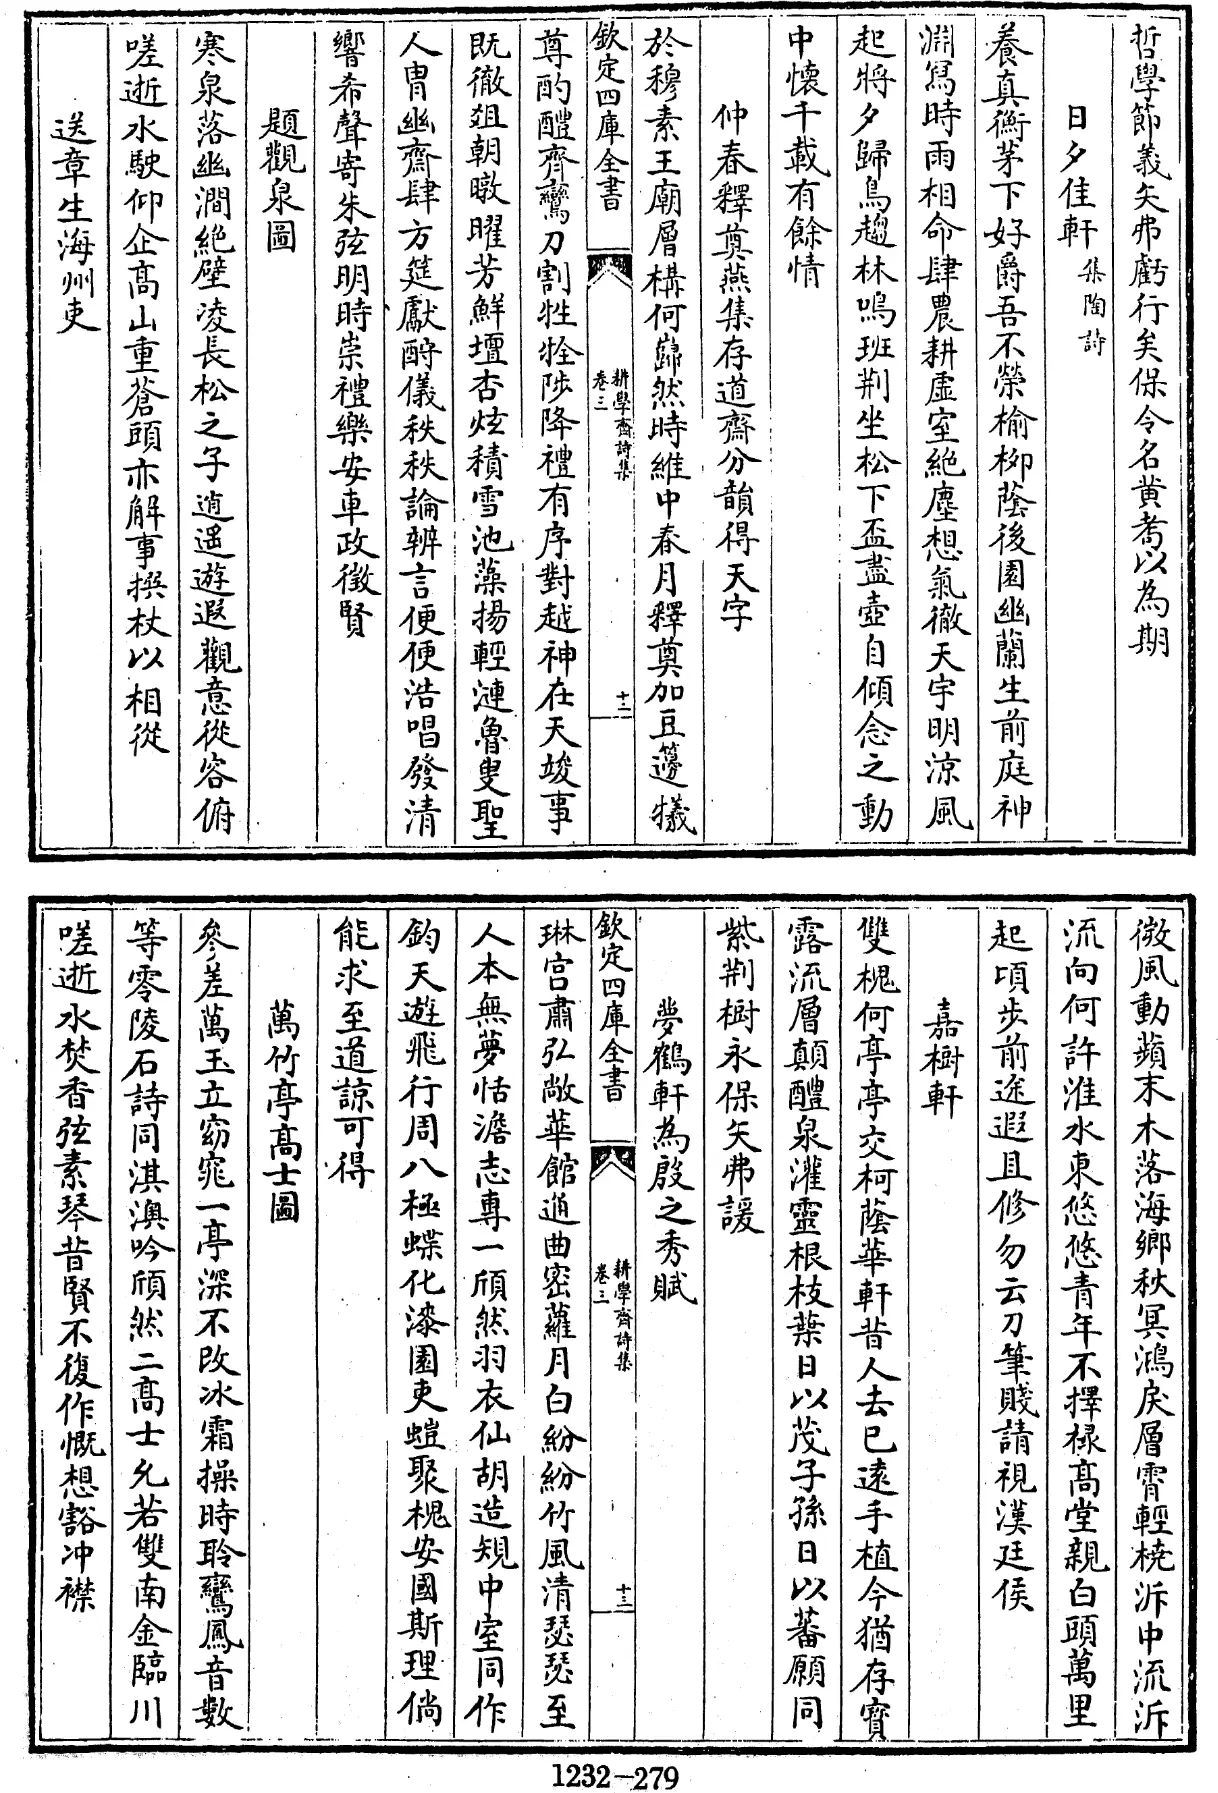 哲學節義矢弗虧行矣保令名黄耈以為期
日夕佳軒集陶詩
養真衡茅下好爵吾不榮榆柳蔭後園幽蘭生前庭神
淵寫時雨相命肆農耕虛室絶塵想氣徹天宇明涼風
起將夕歸鳥趨林鳴班荆坐松下盃盡壺自傾念之動
中懷千載有餘情
仲春釋奠燕集存道齋分韻得天字
於穆素王廟層構何巋然時維中春月釋奠加豆籩犧
欽定四庫全書
耕學齋詩集
卷三
十二
尊酌醴齊鸞刀割牲牷陟降禮有序對越神在天竣事
既徹俎朝暾曜芳鮮壇杏炫積雪池藻揚輕漣魯叟聖
人胄幽齋肆方筵獻酧儀秩秩論辨言便便浩唱發清
響希聲寄朱弦明時崇禮樂安車政徵賢
題觀泉圖
寒泉落幽澗絶壁凌長松之子逍遥遊遐觀意從容俯
嗟逝水駛仰企髙山重蒼頭亦解事撰杖以相從
送章生海州吏
微風動蘋末木落海鄉秋冥鴻戾層霄輕橈泝中流泝
流向何許淮水東悠悠青年不擇禄髙堂親白頭萬里
起頃步前途遐且修勿云刀筆賤請視漢廷侯
嘉樹軒
雙槐何亭亭交柯蔭華軒昔人去已遠手植今猶存寳
露流層顛醴泉灌靈根枝葉日以茂子孫日以蕃願同
紫荆樹永保矢弗諼
夢鶴軒為殷之秀賦
欽定四庫全書
耕學齋詩集
卷三
十三
琳宫肅弘敞華館通曲密蘿月白紛紛竹風清瑟瑟至
人本無夢恬澹志專一頎然羽衣仙胡造規中室同作
鈞天遊飛行周八極蝶化漆園吏螘聚槐安國斯理倘
能求至道諒可得
萬竹亭髙士圖
參差萬玉立窈窕一亭深不改冰霜操時聆鸞鳳音數
等零陵石詩同淇澳吟頎然二髙士允若雙南金臨川
嗟逝水焚香弦素琴昔賢不復作慨想豁冲襟
1232-279